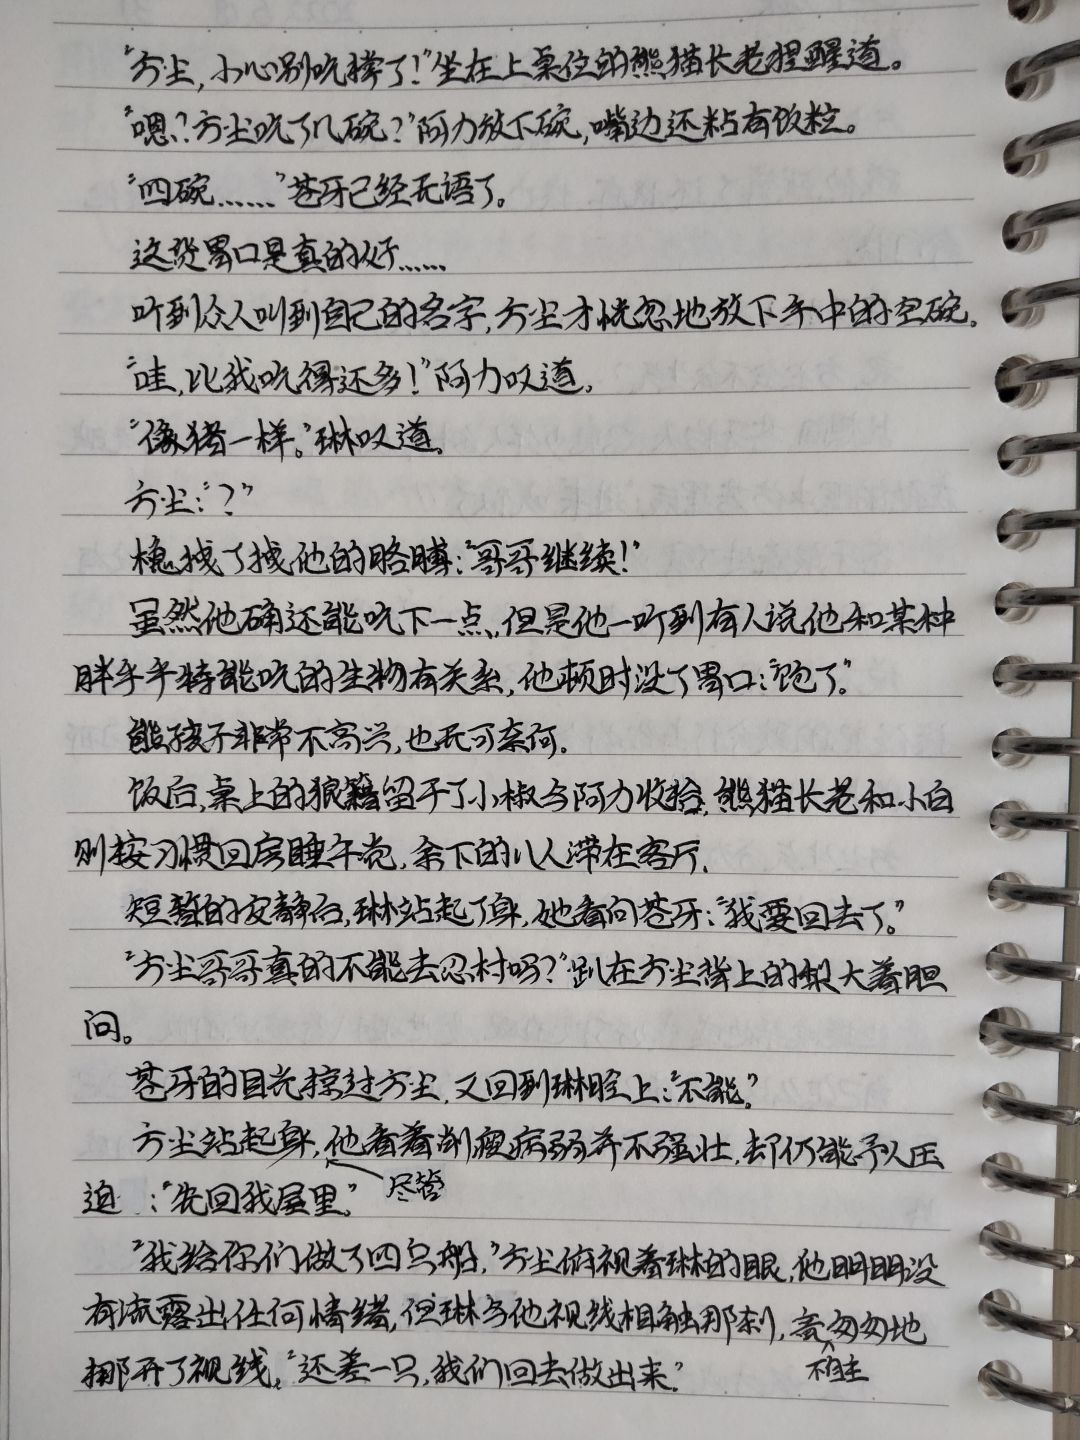 “方尘,小心别吃撑了!”坐在上桌位的熊猫长老提醒道。
“嗯?方尘吃了几碗?”阿力放下碗,嘴边还粘有饭粒。
“四碗……”苍牙已经无语了。
这货胃口是真的好……
听到众人叫到自己的名字,方尘才恍忽地放下手中的空碗。
“哇,比我吃得还多!”阿力叹道。
“像猪一样。”琳叹道。
方尘:“?”
槐拽了拽他的胳膊:“哥哥继续!”
虽然他确还能吃下一点,但是他一听到有人说他和某种
胖乎乎特能吃的生物有关系,他顿时没了胃口:“饱了”
熊孩子非常不高兴,也无可奈何。
饭后,桌上的狼籍留予了小椒与阿力收拾,熊猫长老和小白
则按习惯回房睡午觉,余下的几人滞在客厅.
短暂的安静后,琳站起了身,她看向苍牙:“我要回去了。”
“方尘哥哥真的不能去忍村吗?”趴在方尘背上的梨大着胆
问。
苍牙的目光掠过方尘,又回到琳脸上:“不能。”
方尘站起身,他看着削瘦病弱并不强壮,却仍能予人压
迫:“先回我屋里。” 尽管
“我给你们做了四只船,”方尘俯视着琳的眼,他明明没
有流露出任何情绪,但琳与他视线相触那刹,竟匆匆地
挪开了视线。“还差一只,我们回去做出来。” 不自主